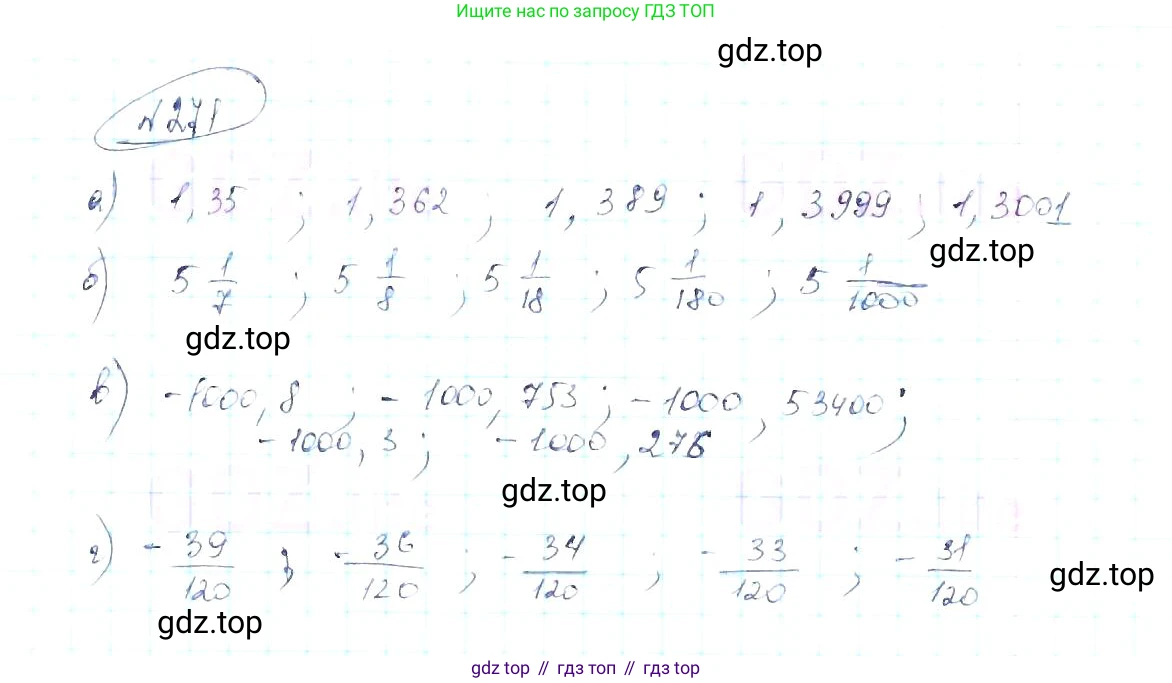 Ищите нас по запросу ГДЗ ТОП
gdz.top
№271
а) 1,35 ; 1,362 ; 1,389 ; 1,3999 ; 1,3001
gdz.top
б) 5 1/7 ; 5 1/8 ; 5 1/18 ; 5 1/180 ; 5 1/1000
gdz.top
в) -1000,8 ; -1000,753 ; -1000,53400 ;
-1000,3 ; -1000,276
gdz.top
г) - 39/120 ; - 36/120 ; - 34/120 ; - 33/120 ; - 31/120
gdz.top
gdz.top
gdz top // гдз топ // гдз top